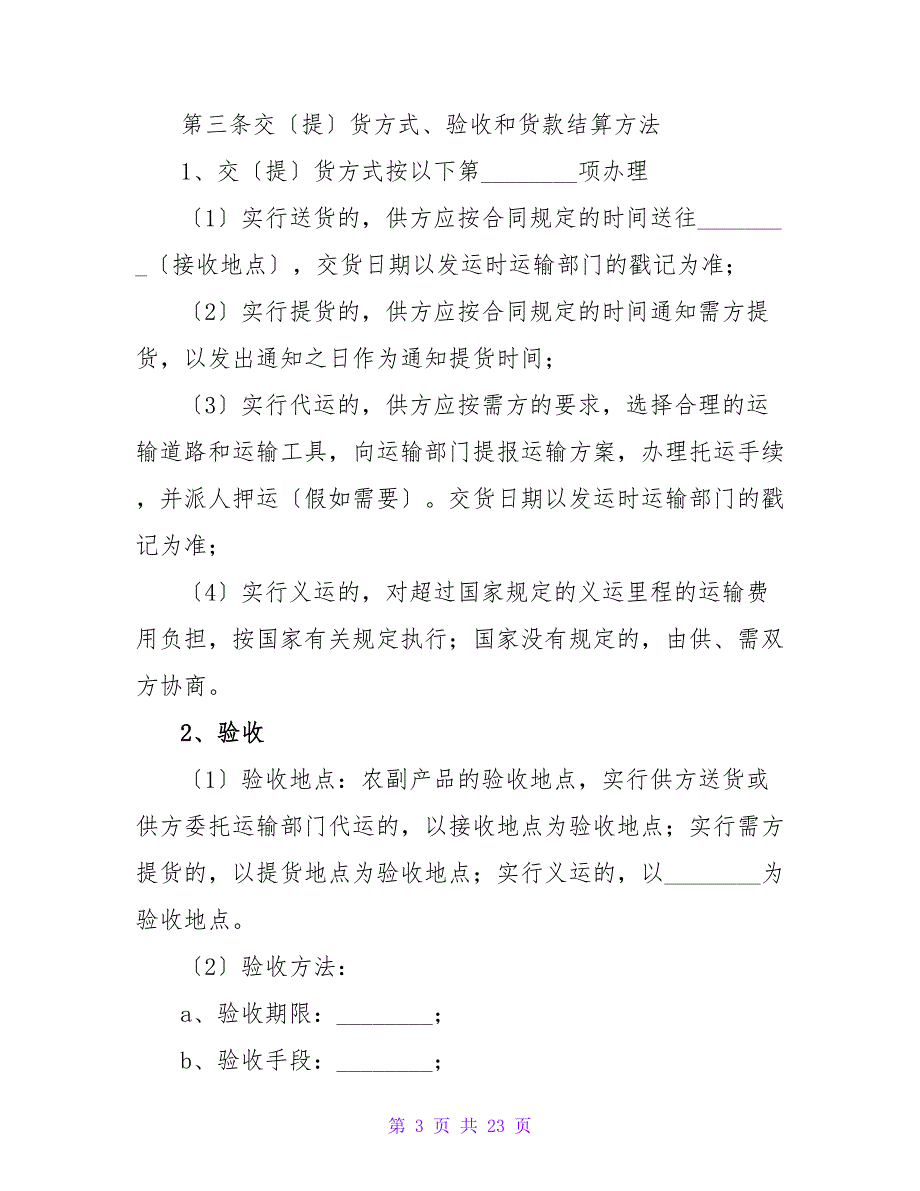 第三条交〔提〕货方式、验收和货款结算方法
1、交〔提〕货方式按以下第________项办理
〔1〕实行送货的，供方应按合同规定的时间送往_______
_〔接收地点〕，交货日期以发运时运输部门的戳记为准；
〔2〕实行提货的，供方应按合同规定的时间通知需方提
货，以发出通知之日作为通知提货时间；
〔3〕实行代运的，供方应按需方的要求，选择合理的运
输道路和运输工具，向运输部门提报运输方案，办理托运手续
，并派人押运〔假如需要〕。交货日期以发运时运输部门的戳
记为准；
〔4〕实行义运的，对超过国家规定的义运里程的运输费
用负担，按国家有关规定执行；国家没有规定的，由供、需双
方协商。
2、验收
〔1〕验收地点：农副产品的验收地点，实行供方送货或
供方委托运输部门代运的，以接收地点为验收地点；实行需方
提货的，以提货地点为验收地点；实行义运的，以________为
验收地点。
〔2〕验收方法：
a、验收期限：________；
b、验收手段：________；
第 3 页 共 23 页